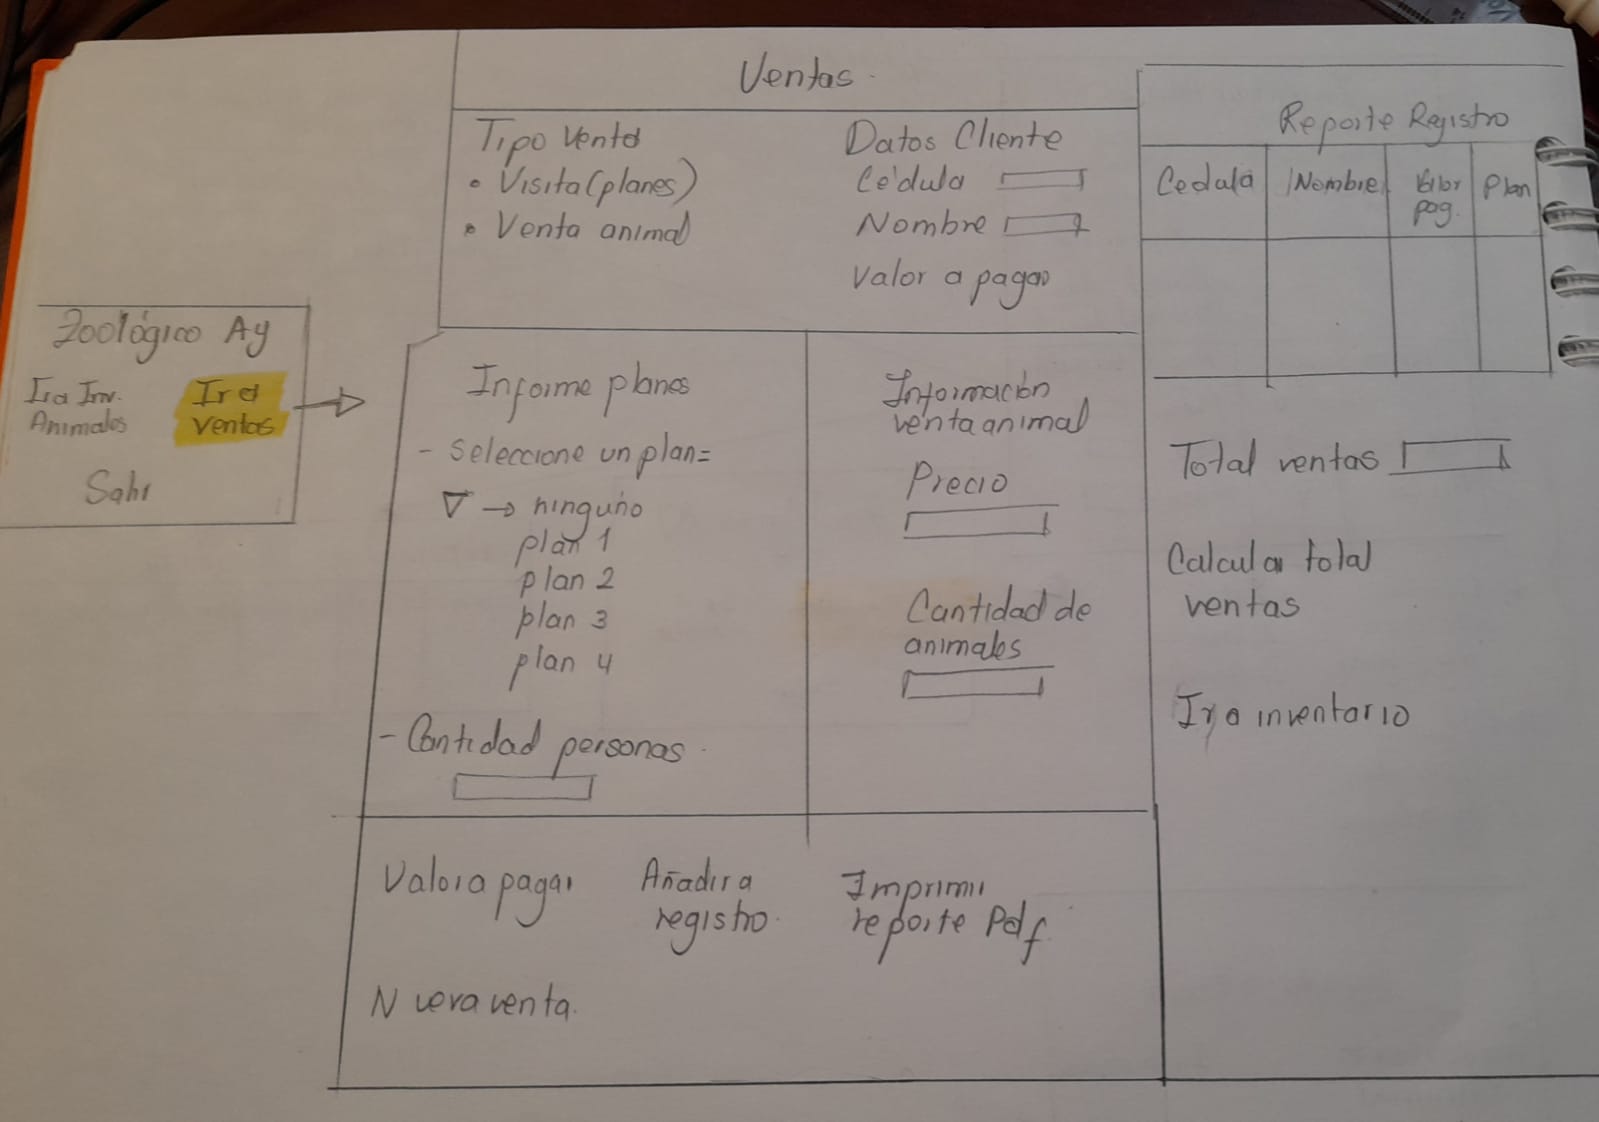 Zoológico Ay
Ir a Inv.
Animales
Ir a
ventas
Salir
Ventas
Tipo Venta
• Visita (planes)
• Venta animal
Datos Cliente
Cédula
Nombre
Valor a pagar
Informe planes
- Seleccione un plan=
∇ → ninguno
plan 1
plan 2
plan 3
plan 4
- Cantidad personas
Información
venta animal
Precio
Cantidad de
animales
Valor a pagar
Añadir a
registro
Imprimir
reporte Pdf
Nueva venta.
Reporte Registro
Cedula Nombre Valor pag. Plan
Total ventas
Calcular total
ventas
Ir a inventario